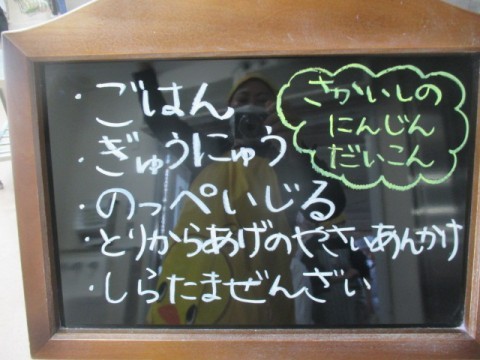 ・ごはん
・ぎゅうにゅう
・のっぺいじる
・とりからあげのやさいあんかけ
・しらたまぜんざい
さかいしの
にんじん
だいこん